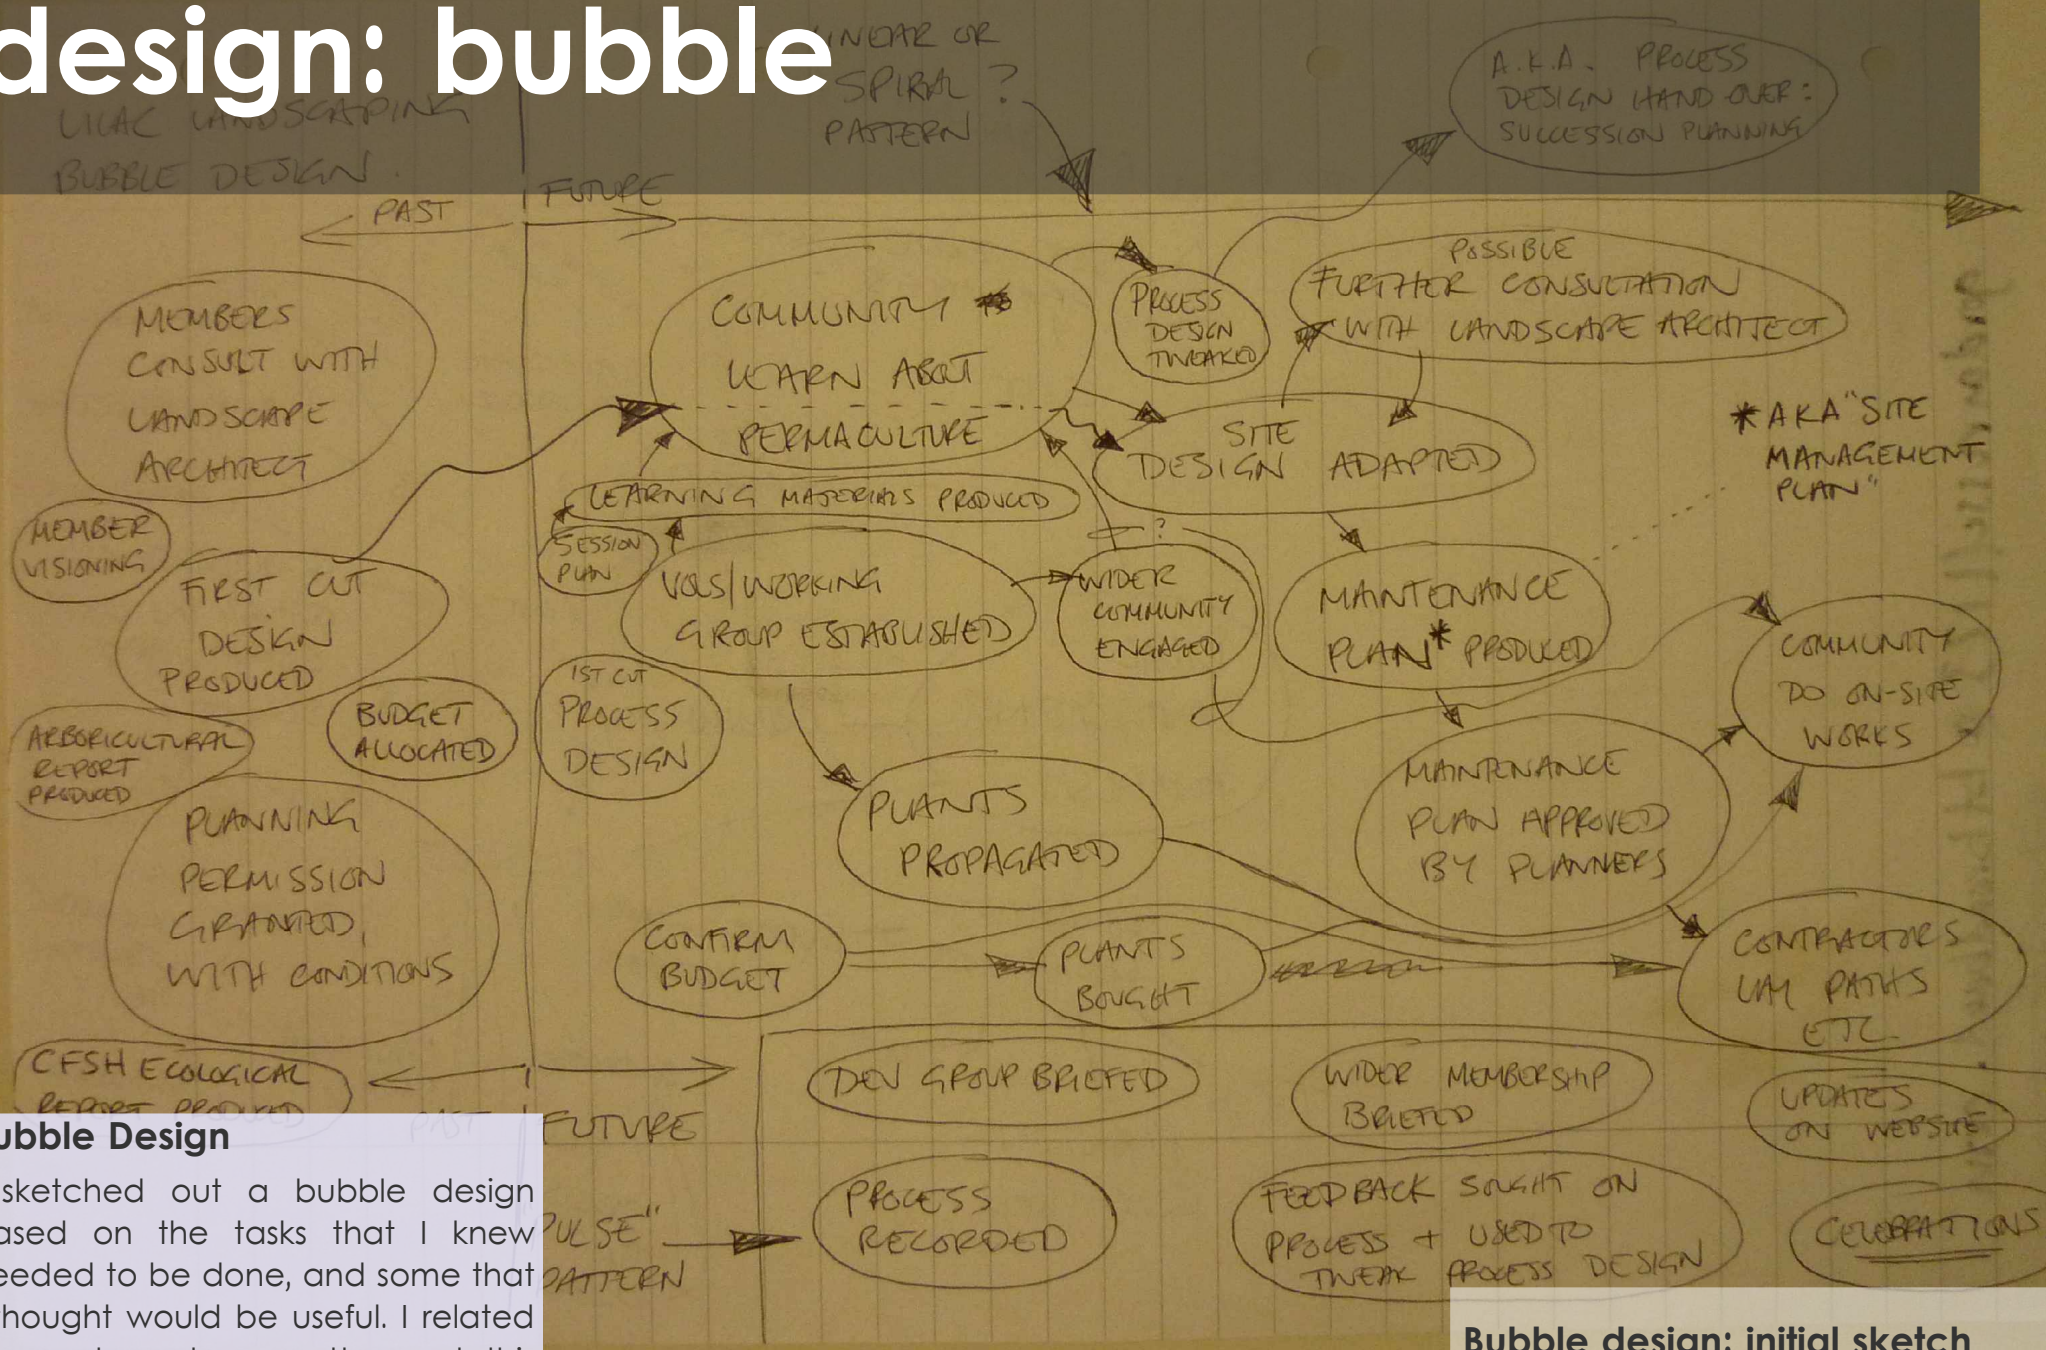 design: bubble
LILAC LANDSCAPING
BUBBLE DESIGN.
LINEAR OR
SPIRAL ?
PATTERN
A.K.A. PROCESS
DESIGN HAND OVER:
SUCCESSION PLANNING
PAST
FUTURE
MEMBERS
CONSULT WITH
LANDSCAPE
ARCHITECT
MEMBER
VISIONING
FIRST CUT
DESIGN
PRODUCED
ARBORICULTURAL
REPORT
PRODUCED
BUDGET
ALLOCATED
PLANNING
PERMISSION
GRANTED,
WITH CONDITIONS
CFSH ECOLOGICAL
REPORT PRODUCED
COMMUNITY
LEARN ABOUT
PERMACULTURE
PROCESS
DESIGN
TWEAKED
POSSIBLE
FURTHER CONSULTATION
WITH LANDSCAPE ARCHITECT
SITE
DESIGN ADAPTED
* AKA "SITE
MANAGEMENT
PLAN"
LEARNING MATERIALS PRODUCED
SESSION
PLAN
VOLS/WORKING
GROUP ESTABLISHED
?
WIDER
COMMUNITY
ENGAGED
MAINTENANCE
PLAN* PRODUCED
COMMUNITY
DO ON-SITE
WORKS
1ST CUT
PROCESS
DESIGN
PLANTS
PROPAGATED
MAINTENANCE
PLAN APPROVED
BY PLANNERS
CONFIRM
BUDGET
PLANTS
BOUGHT
CONTRACTORS
LAY PATHS
ETC.
PAST
FUTURE
DEV GROUP BRIEFED
WIDER MEMBERSHIP
BRIEFED
UPDATES
ON WEBSITE
PULSE"
PATTERN
PROCESS
RECORDED
FEEDBACK SOUGHT ON
PROCESS + USED TO
TWEAK PROCESS DESIGN
CELEBRATIONS
ubble Design
sketched out a bubble design
ased on the tasks that I knew
eeded to be done, and some that
thought would be useful. I related
Bubble design: initial sketch